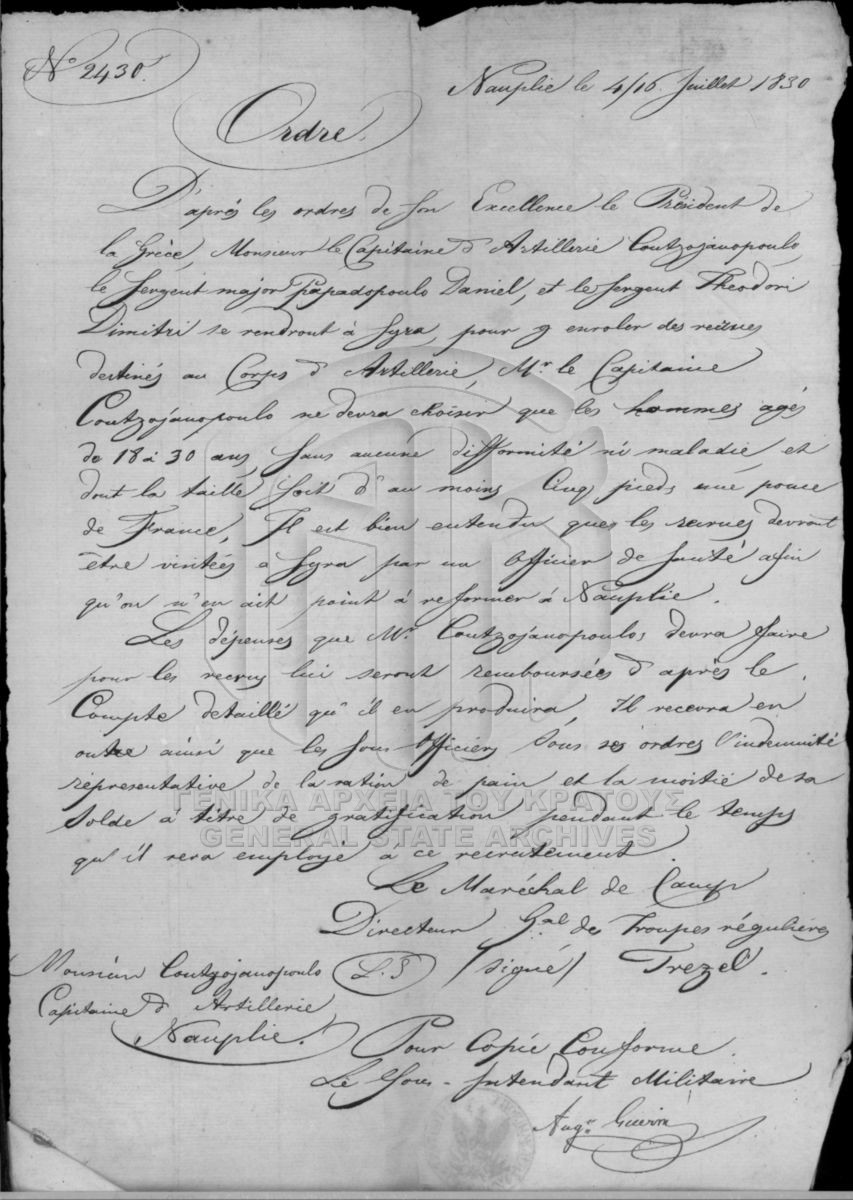 N° 2430.
Nauplie le 4/16 Juillet 1830
Ordre.
D'après les ordres de Son Excellence le Président de
la Grèce, Monsieur le Capitaine d'Artillerie Coutzojanopoulo,
le Sergent major Papadopoulo Daniel, et le Sergent Théodori
Dimitri se rendront à Syra, pour y enroler des recrues
destinés au Corps d'Artillerie, Mr. le Capitaine
Coutzojanopoulo ne devra choisir que les hommes agés
de 18 à 30 ans, Sans aucune difformité ni maladie, et
dont la taille soit d'au moins Cinq pieds une pouce
de France, Il est bien entendu ques les recrues devront
être visités a Syra par un Officier de Santé afin
qu'on n'en ait point à reformer à Nauplie.
Les dépenses que Mr. Coutzojanopoulos devra faire
pour les recrus lui seront remboursées d'après le
Compte detaillé qu'il en produira, Il recevra en
outre ainsi que les Sous Officiers Sous ses ordres l'indemnité
représentative de la ration de pain et la moitié de sa
Solde à titre de gratification pendant le temps
qu'il sera employé a ce recrutement.
Le Maréchal de Camp
Directeur Gal de Troupes régulières
L.S /signé/ Trezel.
Monsieur Coutzojanopoulo
Capitaine d'Artillerie
Nauplie.
Pour Copie Conforme.
Le Sous-Intendant Militaire
Augte Guerin
ΓΕΝΙΚΑ ΑΡΧΕΙΑ ΤΟΥ ΚΡΑΤΟΥΣ
GENERAL STATE ARCHIVES